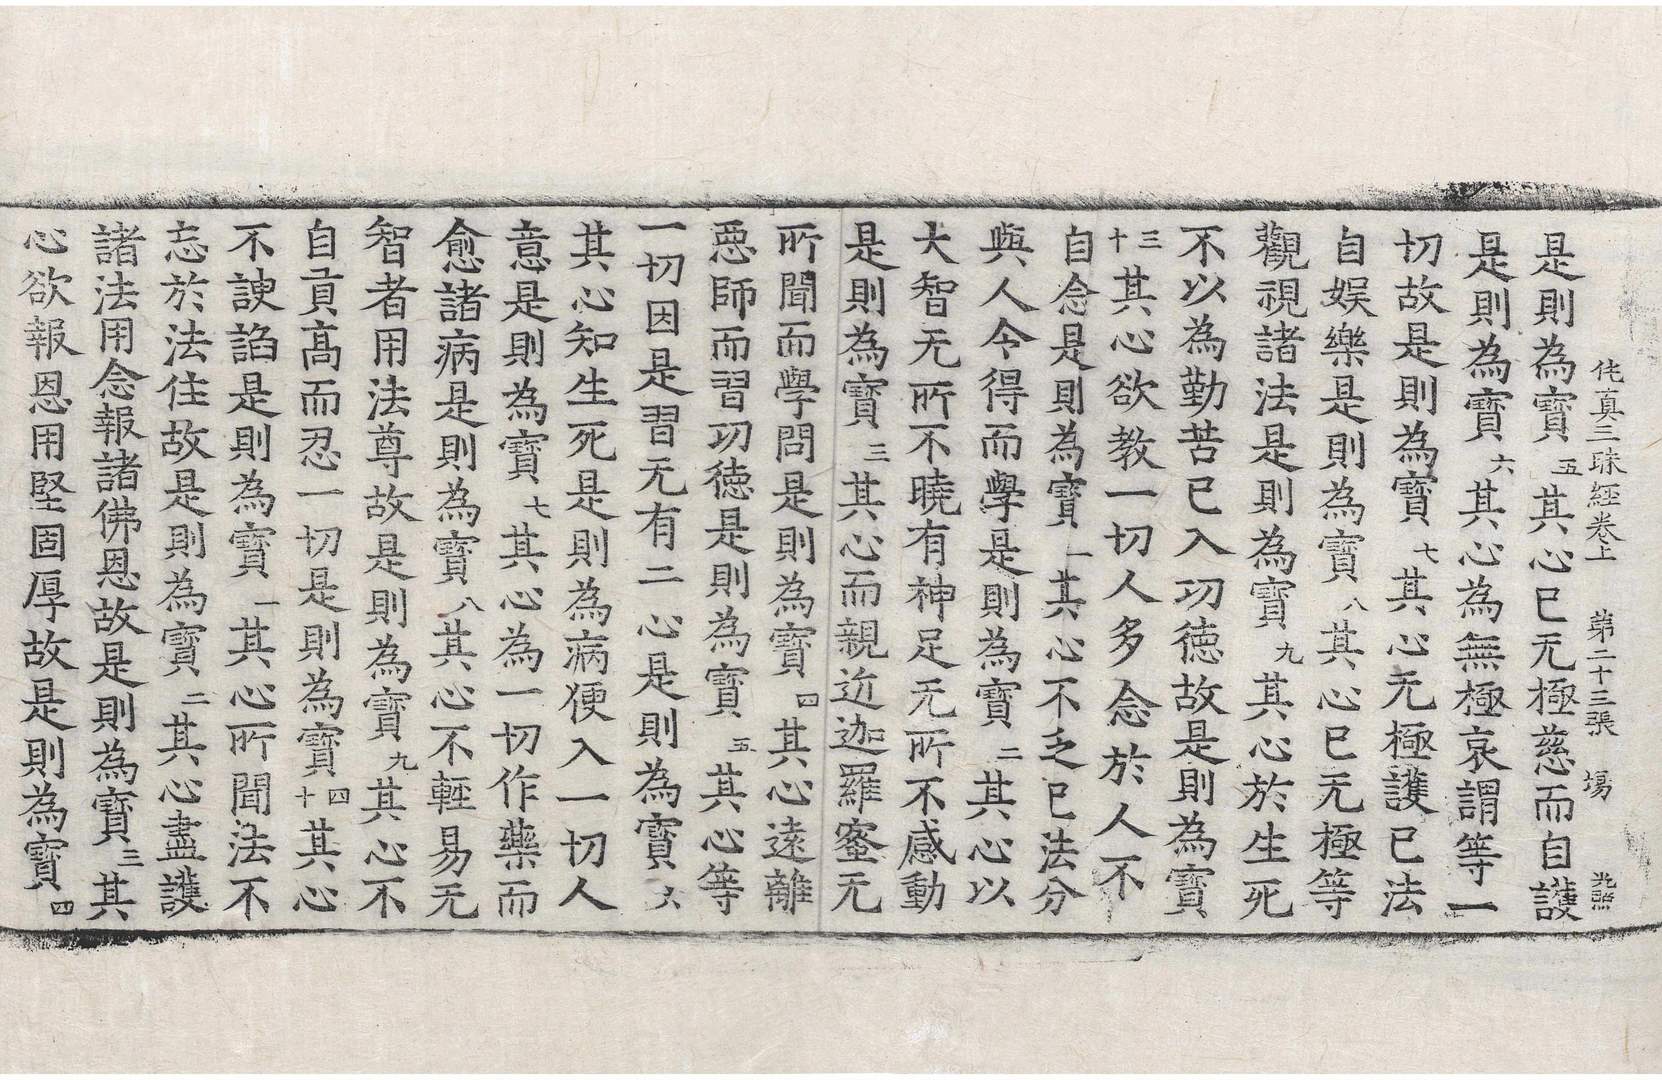 伅真三昧經卷上 第二十三張 塲
是則為寶五其心已无極慈而自護
是則為寶六其心為無極哀謂等一
切故是則為寶七其心无極護已法
自娛樂是則為寶八其心已无極等
觀視諸法是則為寶九其心於生死
不以為勤苦已入功德故是則為寶
三十其心欲教一切人多念於人不
自念是則為寶一其心不乏已法分
與人令得而學是則為寶二其心以
大智无所不曉有神足无所不感動
是則為寶三其心而親近迦羅蜜无
所聞而學問是則為寶四其心遠離
惡師而習功德是則為寶五其心等
一切因是習无有二心是則為寶六
其心知生死是則為病便入一切人
意是則為寶七其心為一切作藥而
愈諸病是則為寶八其心不輕易无
智者用法尊故是則為寶九其心不
自貢高而忍一切是則為寶四十其心
不諛諂是則為寶一其心所聞法不
忘於法住故是則為寶二其心盡護
諸法用念報諸佛恩故是則為寶三其
心欲報恩用堅固厚故是則為寶四